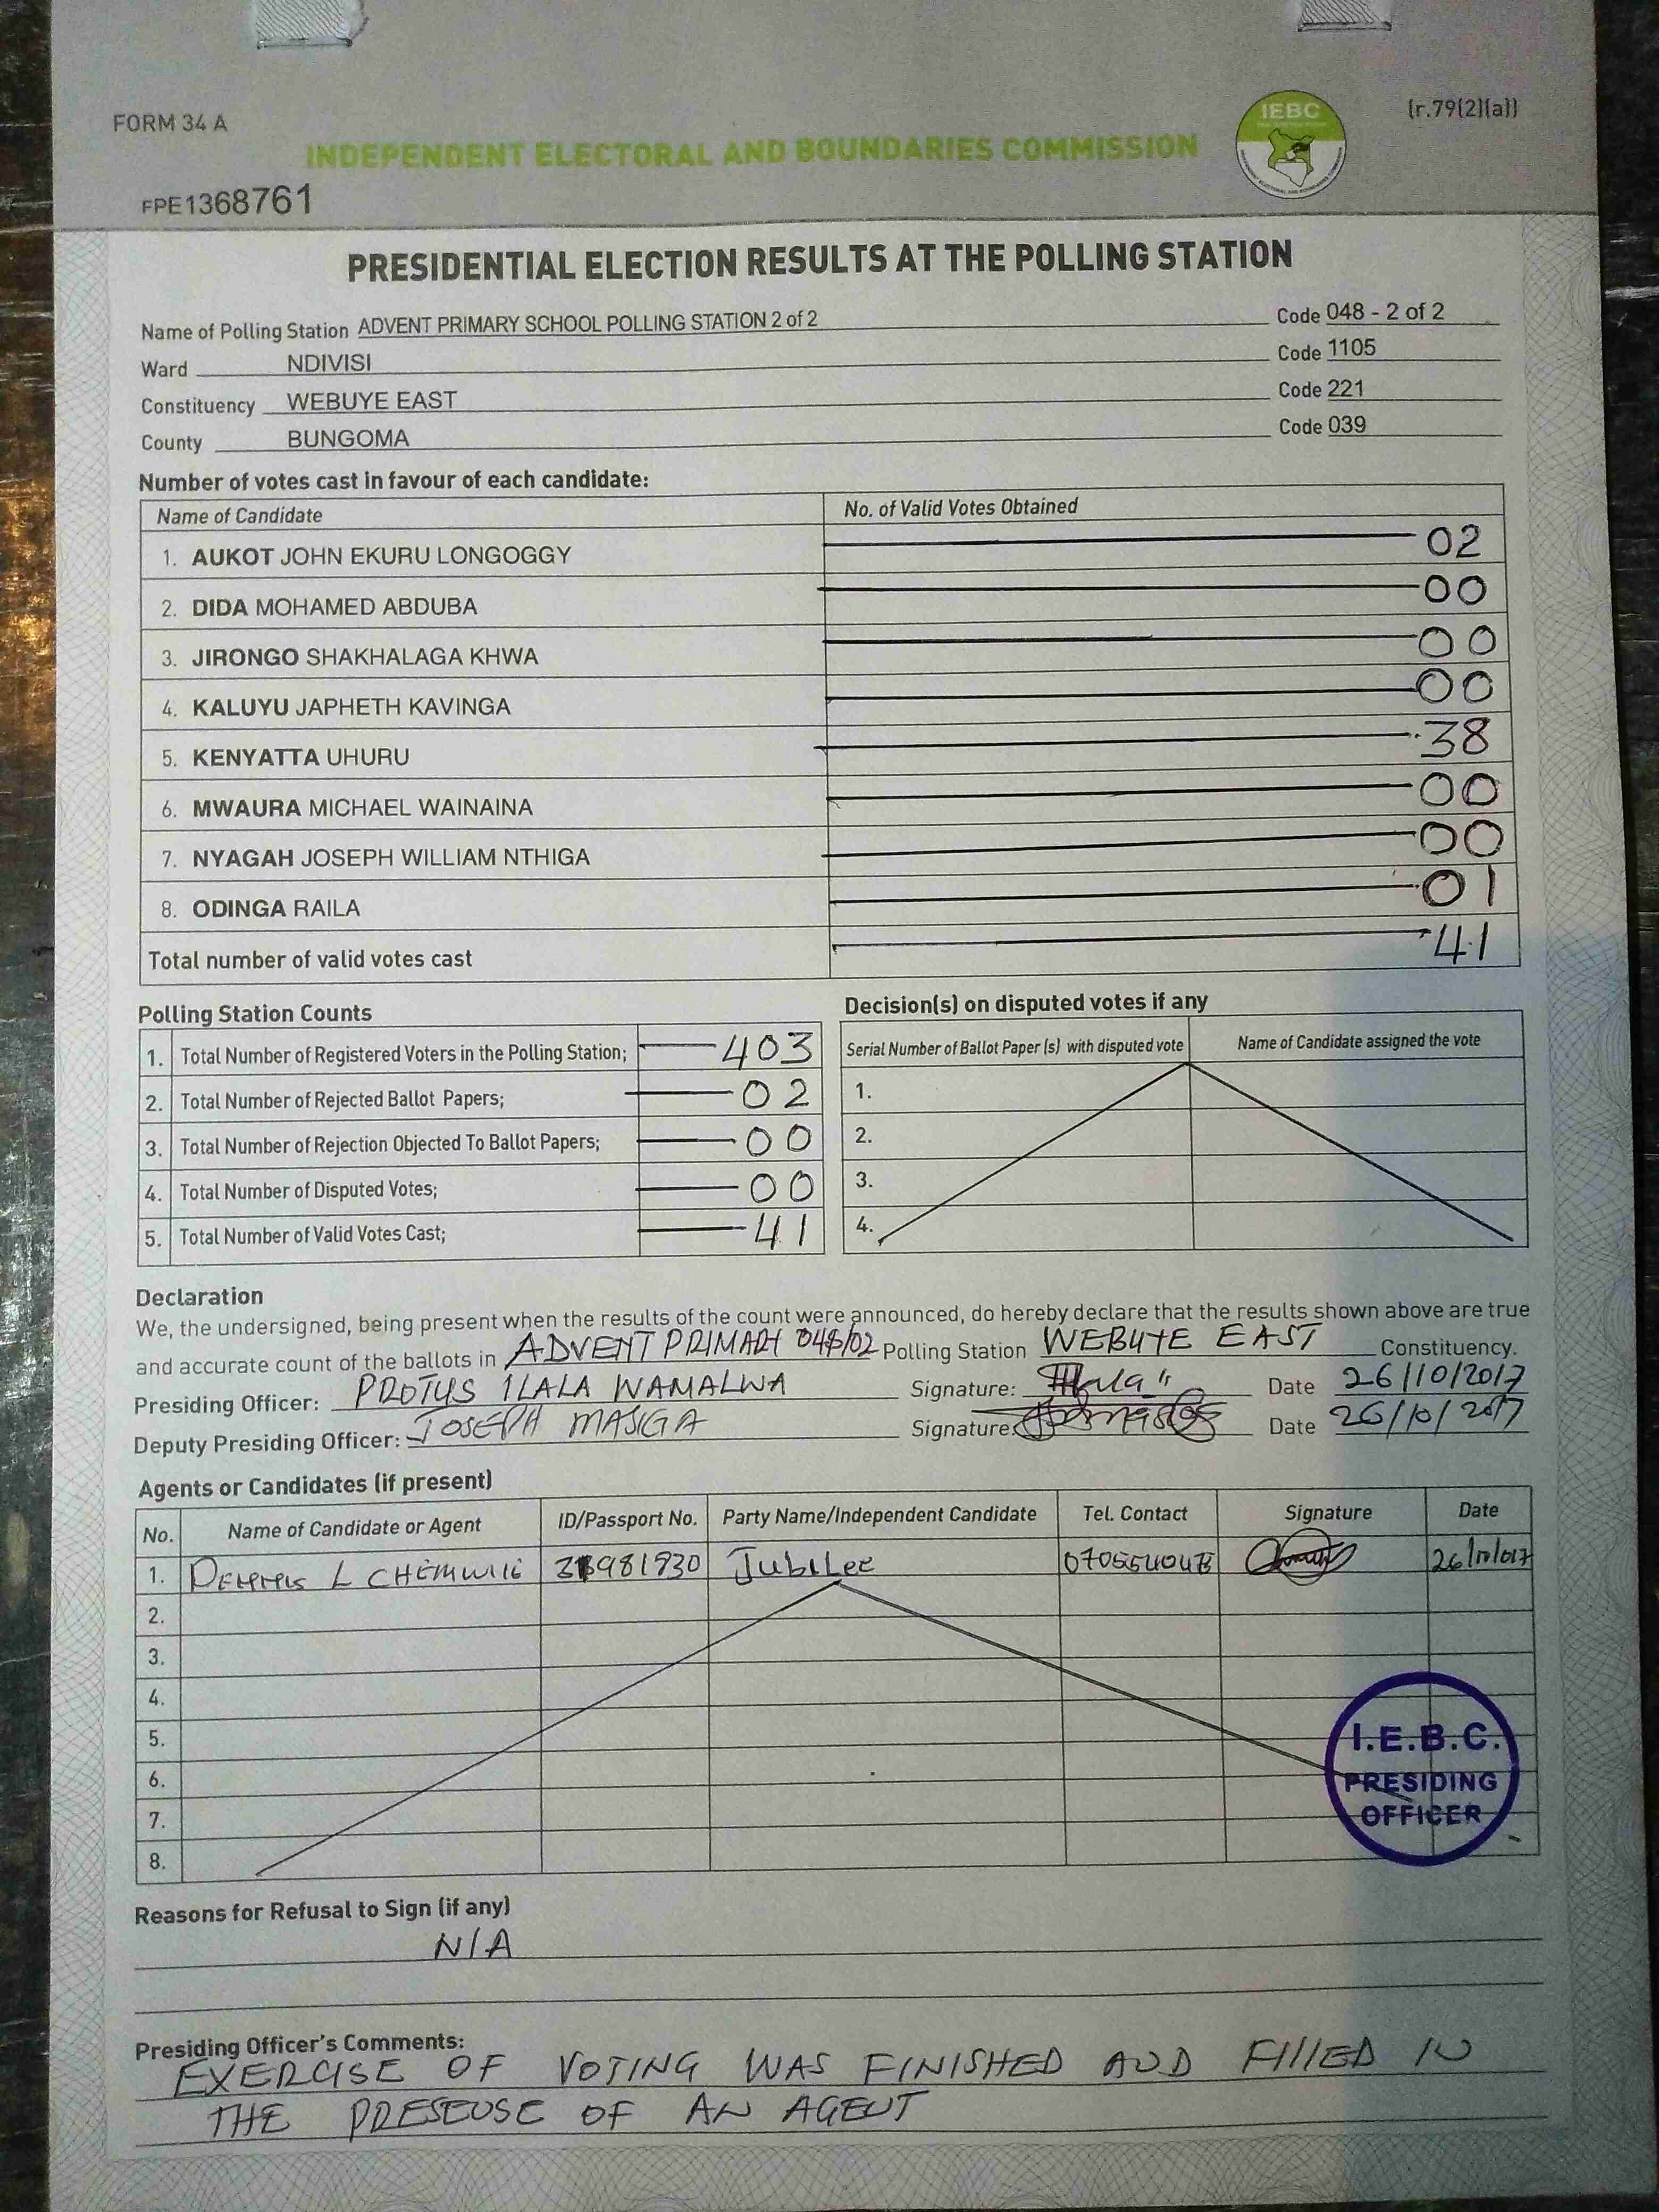 FORM 34 A
(r.79(2)(a))
IEBC
INDEPENDENT ELECTORAL AND BOUNDARIES COMMISSION
FPE1368761
PRESIDENTIAL ELECTION RESULTS AT THE POLLING STATION
Name of Polling Station ADVENT PRIMARY SCHOOL POLLING STATION 2 of 2 Code 048 - 2 of 2
Ward NDIVISI Code 1105
Constituency WEBUYE EAST Code 221
County BUNGOMA Code 039
Number of votes cast in favour of each candidate:
Name of Candidate No. of Valid Votes Obtained
1. AUKOT JOHN EKURU LONGOGGY 02
2. DIDA MOHAMED ABDUBA 00
3. JIRONGO SHAKHALAGA KHWA 00
4. KALUYU JAPHETH KAVINGA 00
5. KENYATTA UHURU 38
6. MWAURA MICHAEL WAINAINA 00
7. NYAGAH JOSEPH WILLIAM NTHIGA 00
8. ODINGA RAILA 01
Total number of valid votes cast 41
Polling Station Counts
1. Total Number of Registered Voters in the Polling Station; 403
2. Total Number of Rejected Ballot Papers; 02
3. Total Number of Rejection Objected To Ballot Papers; 00
4. Total Number of Disputed Votes; 00
5. Total Number of Valid Votes Cast; 41
Decision(s) on disputed votes if any
Serial Number of Ballot Paper (s) with disputed vote Name of Candidate assigned the vote
1.
2.
3.
4.
Declaration
We, the undersigned, being present when the results of the count were announced, do hereby declare that the results shown above are true
and accurate count of the ballots in ADVENT PRIMARY 048/02 Polling Station WEBUYE EAST Constituency.
Presiding Officer: PROTUS ILALA WAMALWA Signature: Date 26/10/2017
Deputy Presiding Officer: JOSEPH MASIGA Signature: Date 26/10/2017
Agents or Candidates (if present)
No. Name of Candidate or Agent ID/Passport No. Party Name/Independent Candidate Tel. Contact Signature Date
1. L Jubilee
2.
3.
4.
5.
6.
7.
8.
I.E.B.C.
PRESIDING
OFFICER
Reasons for Refusal to Sign (if any)
N/A
Presiding Officer's Comments:
EXERCISE OF VOTING WAS FINISHED AND FIllED IN
THE PRESENSE OF AN AGENT